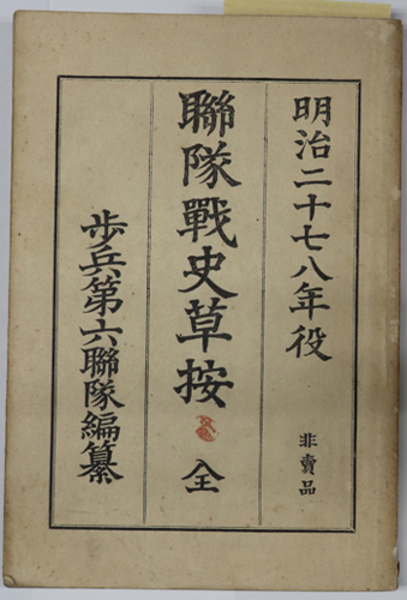 明治二十七八年役
非賣品
聯隊戰史草按 全
歩兵第六聯隊編纂